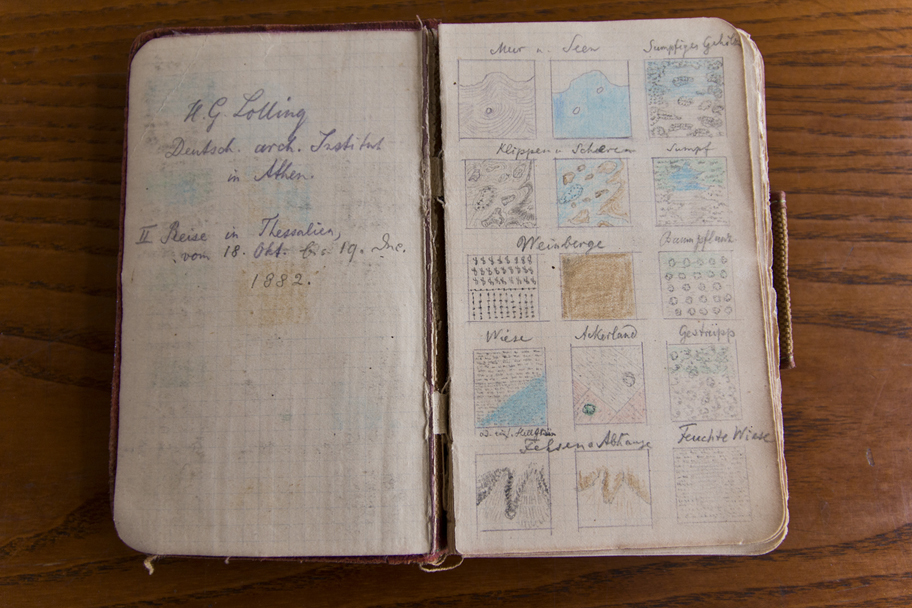 H. G. Lolling
Deutsch. arch. Institut
in Athen.
II Reise in Thessalien,
vom 18. Okt. bis 19. Dec.
1882.
Meer u. Seen
Sumpfiges Gehölz
Klippen u Scheren
Sumpf
Weinberge
Baumpflanz
Wiese
Ackerland
Gestrüpp
od. einf. Hellgrün
Felsen u Abhänge
Feuchte Wiese